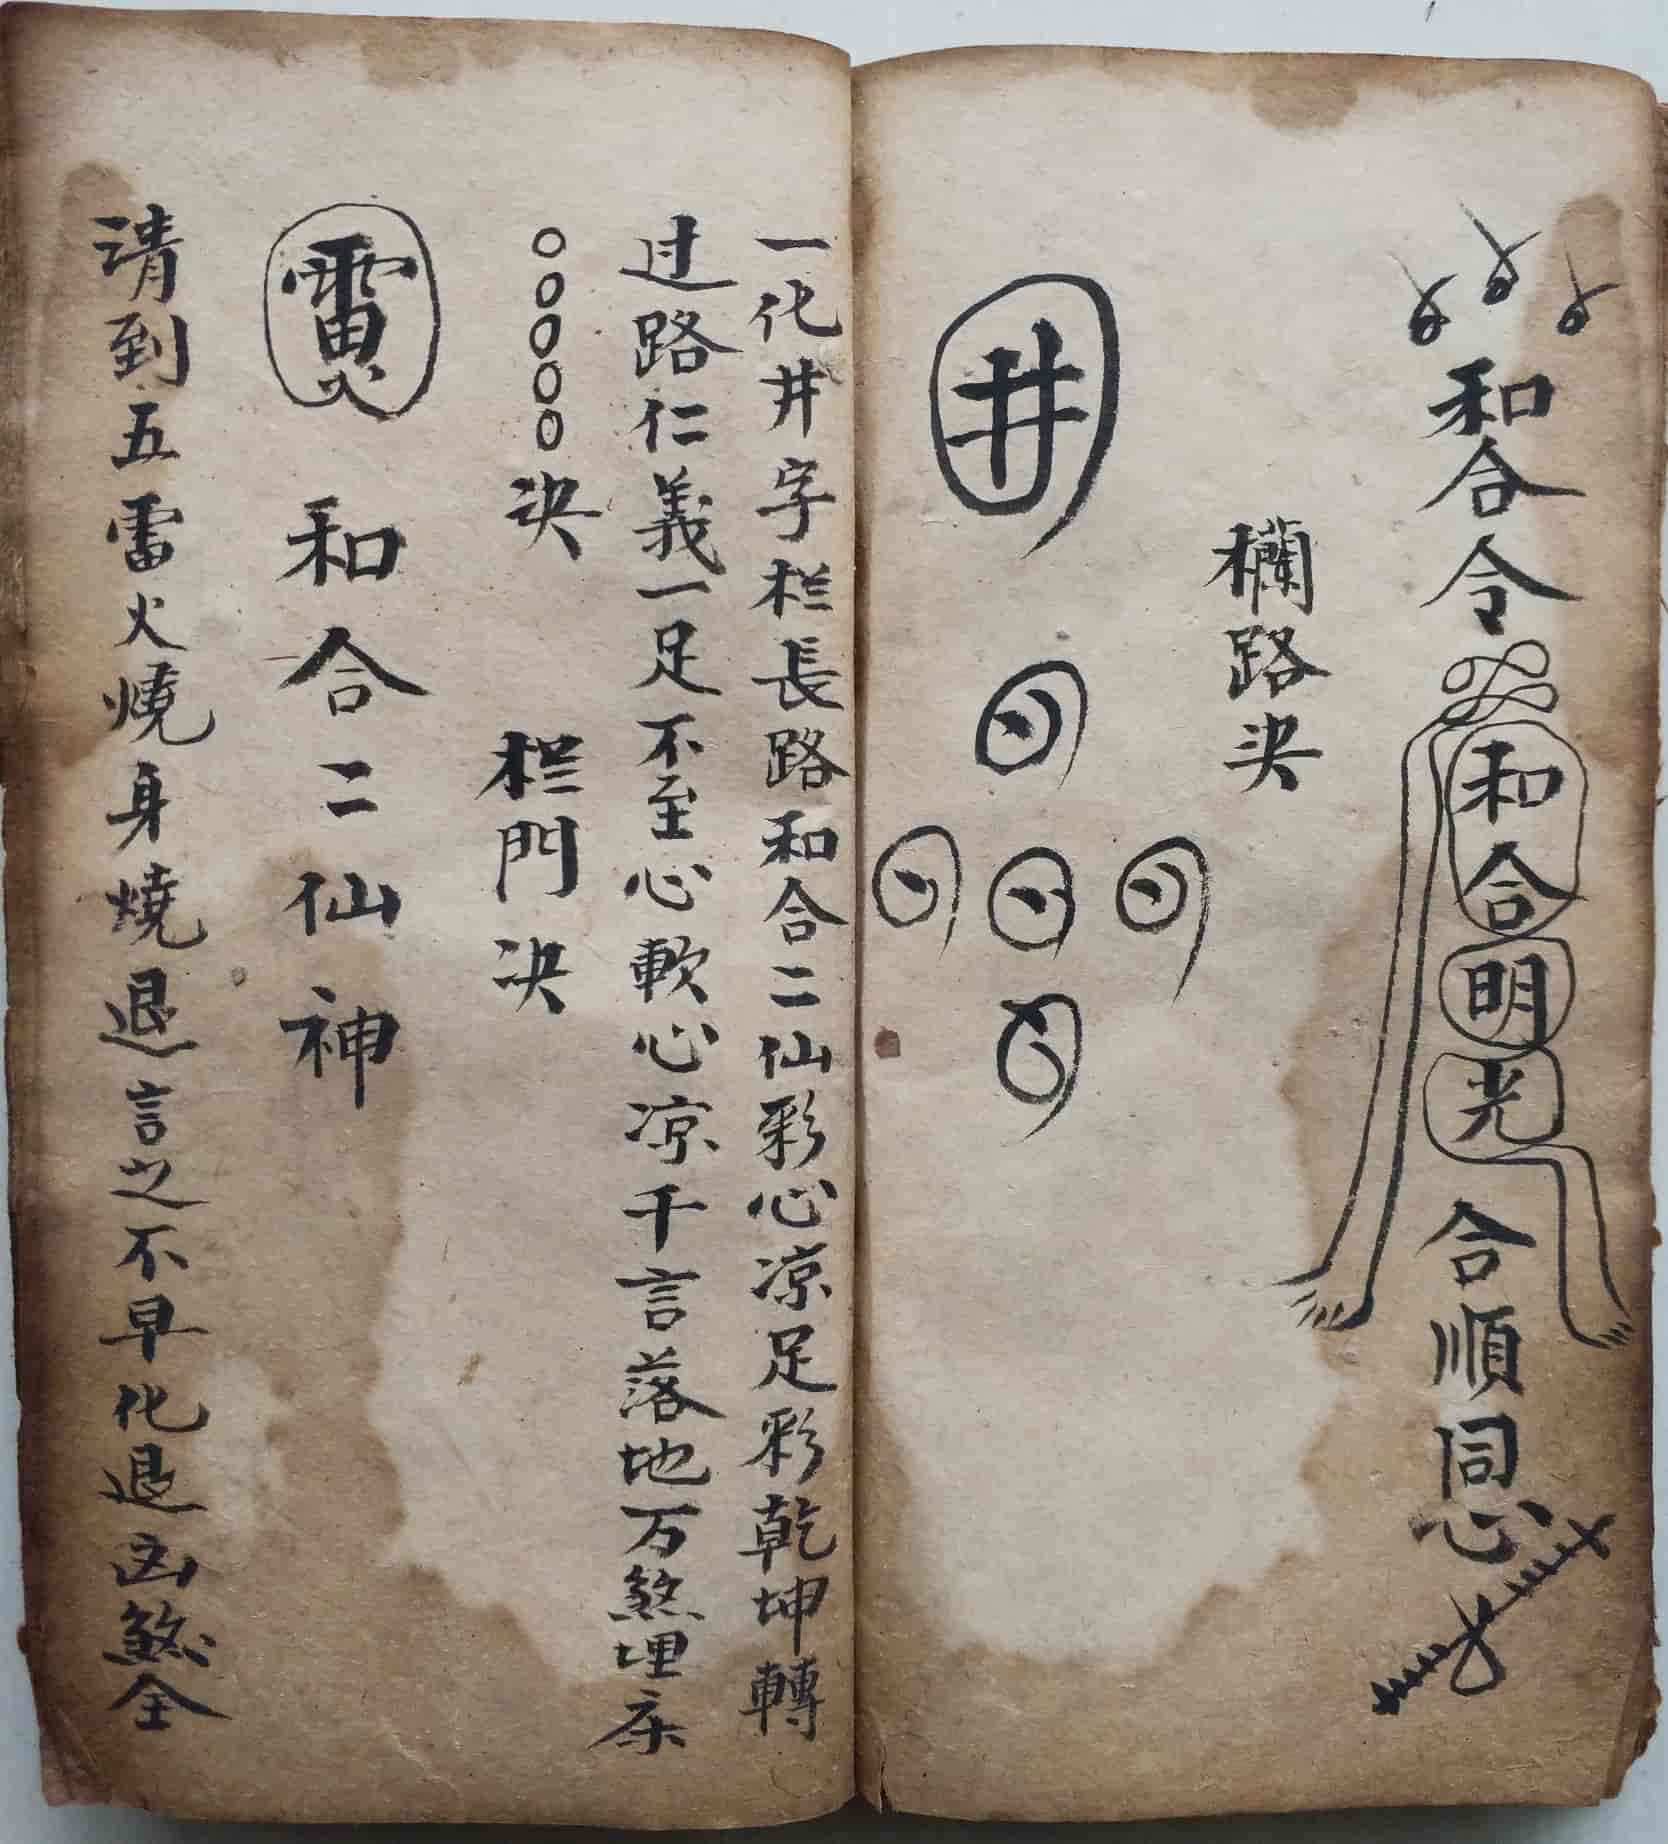 和合令
和合
明
光
合順同心
欄路决
井
一化井字栏長路和合二仙彩心凉足彩乾坤轉
过路仁義一足不至心軟心凉千言落地万煞埋床
决
栏門决
雷火
和合二仙神
请到五雷火燒身燒退言之不早化退凶煞全